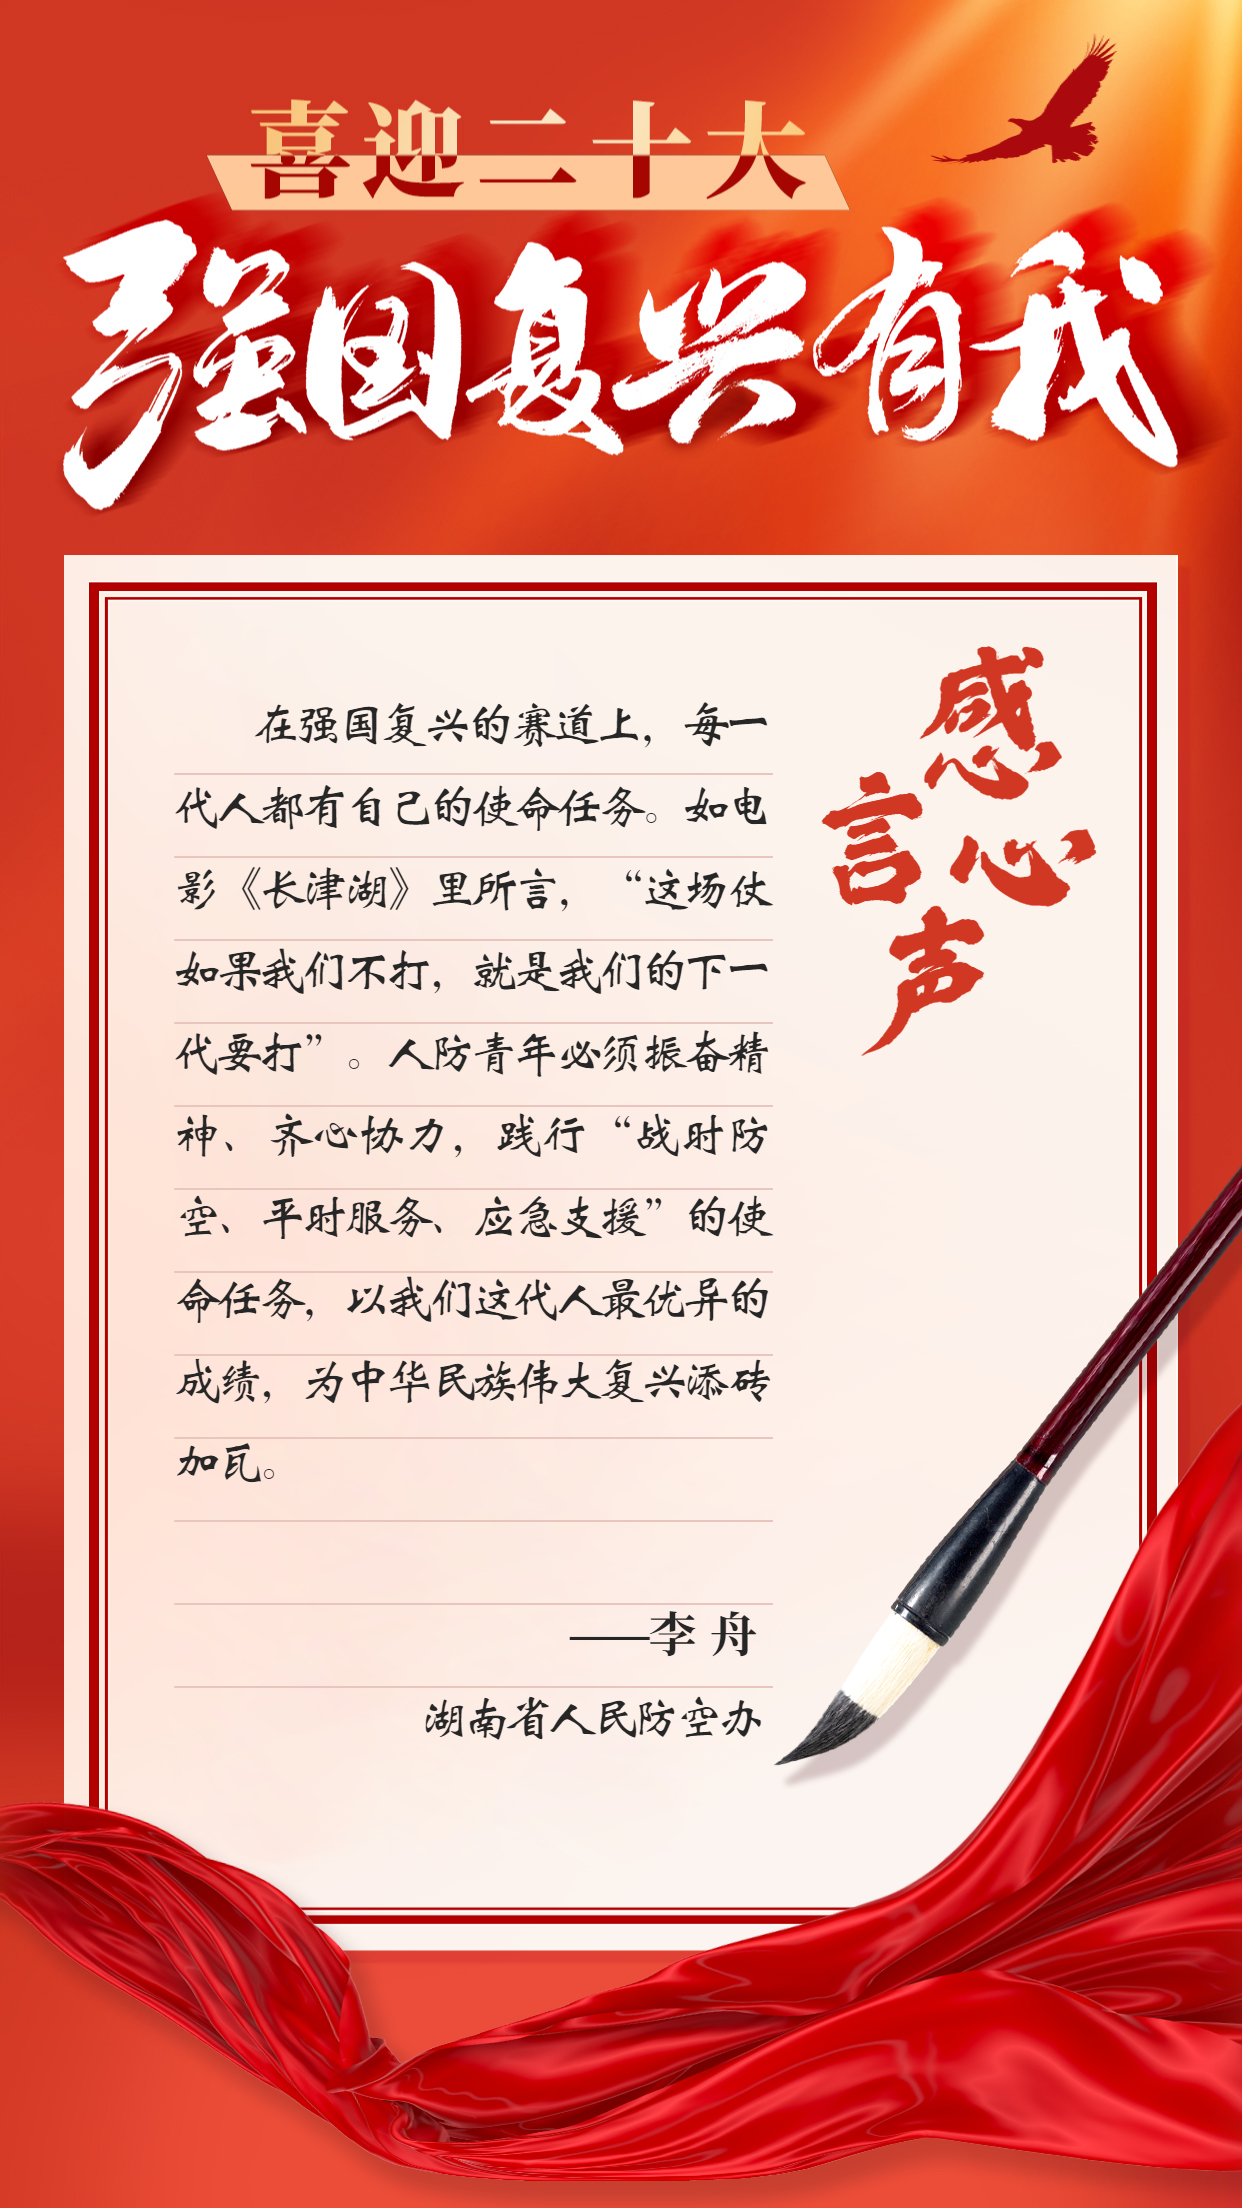 喜迎二十大
强国复兴有我
感言心声
在强国复兴的赛道上，每一
代人都有自己的使命任务。如电
影《长津湖》里所言，“这场仗
如果我们不打，就是我们的下一
代要打”。人防青年必须振奋精
神、齐心协力，践行“战时防
空、平时服务、应急支援”的使
命任务，以我们这代人最优异的
成绩，为中华民族伟大复兴添砖
加瓦。
——李 舟
湖南省人民防空办